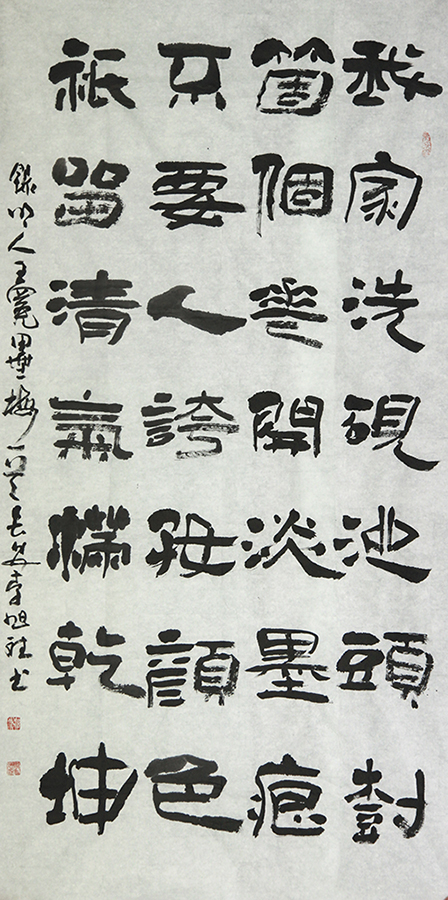 我家洗硯池頭樹
箇個花開淡墨痕
只要人誇好顏色
祇留清氣滿乾坤
錄明人王冕墨梅一首長安李旭書